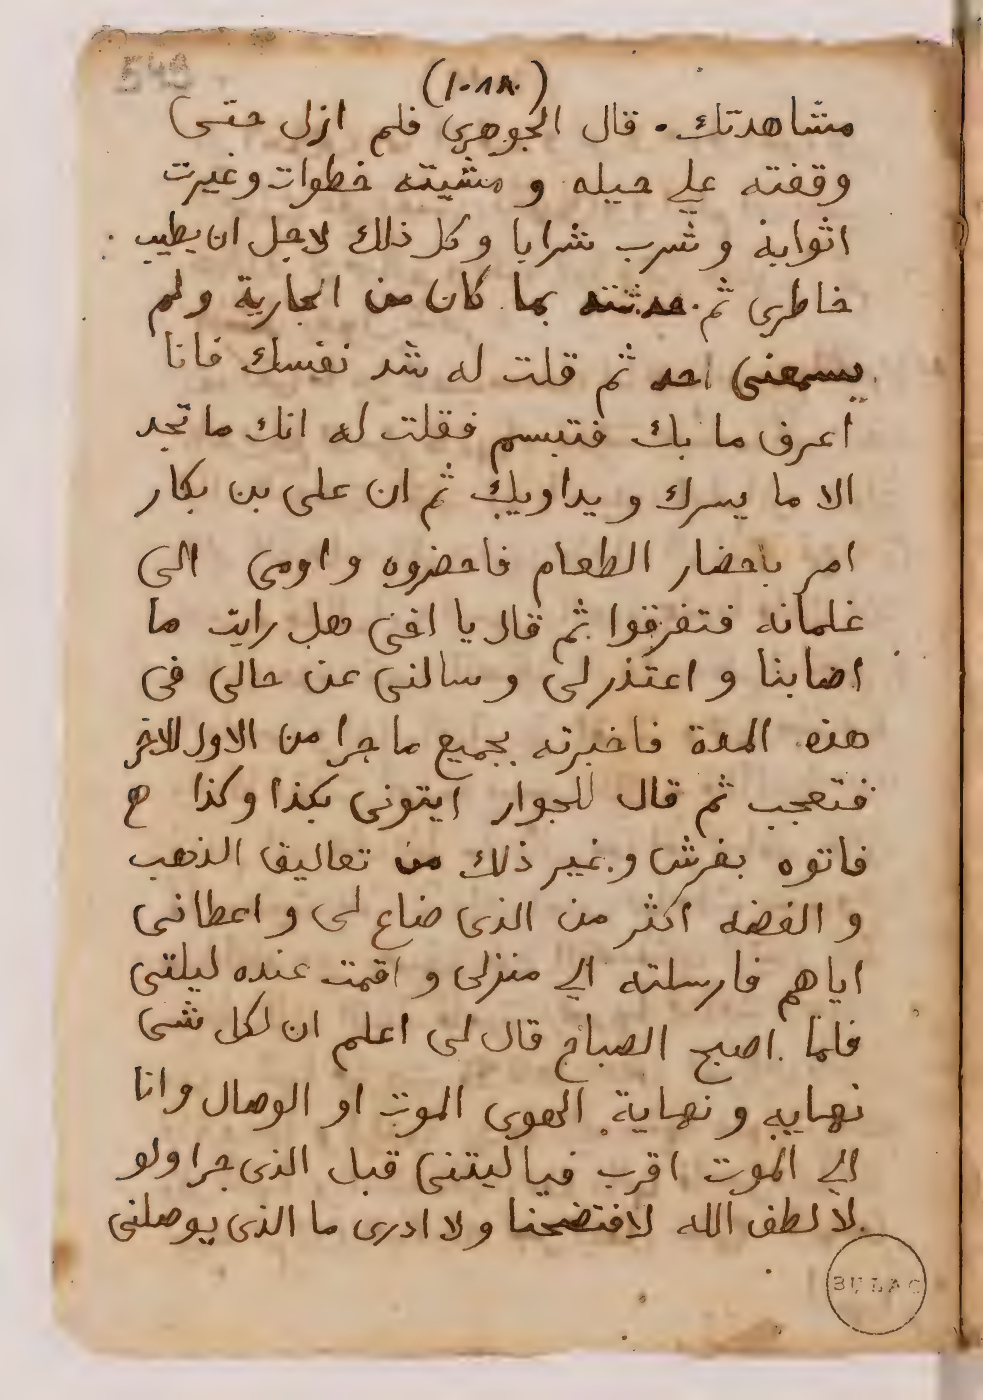 549
(١٠١٨)
مشاهدتك. قال الجوهري فلم ازل حتى
وقفته علي حيله و مشيته خطوات وغيرت
اثوابه و شرب شرابا وكل ذلك لاجل ان يطيب
خاطري ثم حدثته بما كان من الجارية ولم
يسمعني احد ثم قلت له شد نفسك فانا
اعرف ما بك فتبسم فقلت له انك ما تجد
الا ما يسرك و يداويك ثم ان على بن بكار
امر باحضار الطعام فاحضروه و اومى الى
غلمانه فتفرقوا ثم قال يا اخى هل رايت ما
اصابنا و اعتذر لى و سالنى عن حالى فى
هذه المدة فاخبرته بجميع ما جرا من الاول للاخر
فتعجب ثم قال للجوار ايتونى بكذا وكذا
فاتوه بفرش و غير ذلك من تعاليق الذهب
و الفضه اكثر من الذى ضاع لى و اعطانى
اياهم فارسلته الي منزلى و اقمت عنده ليلتى
فلما اصبح الصباح قال لى اعلم ان لكل شى
نهايه و نهاية الهوى الموت او الوصال وانا
الي الموت اقرب فياليتنى قبل الذى جرا ولو
لا لطف الله لافتضحنا ولا ادرى ما الذى يوصلنى
BULAC